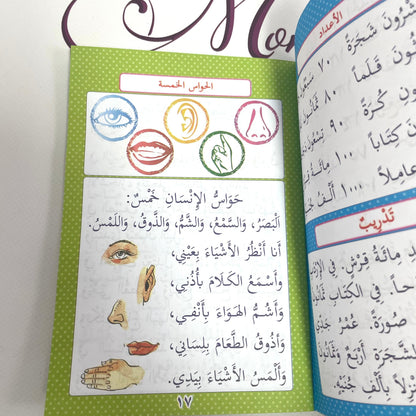 الحواس الخمسة
حَوَاسُّ الإِنْسَانِ خَمْسٌ:
اَلْبَصَرُ، وَالسَّمْعُ، وَالشَّمُّ، وَالذَّوْقُ، وَاللَّمْسُ.
أَنَا أَنْظُرُ الأَشْيَاءَ بِعَيْنِي،
وَأَسْمَعُ الْكَلَامَ بِأُذُنِي،
وَأَشُمُّ الْهَوَاءَ بِأَنْفِي،
وَأَذُوقُ الطَّعَامَ بِلِسَانِي،
وَأَلْمَسُ الأَشْيَاءَ بِيَدِي.
١٧
الأعداد
شَجَرَةً ٧٠
قَلَمًا ٨٠
كُرَةً ٩٠
كِتَابًا ١٠٠ مِائَةُ
عَامِلًا ١٠٠٠ أَلْفُ
تَدْرِيبٌ
مِائَةُ قِرْشٍ. فِي
فِي الْكِتَابِ
صُورَةً. عُمْرُ جَدِّي
الشَّجَرَةِ أَرْبَعٌ
بِأَلْفِ جُنَيْهٍ